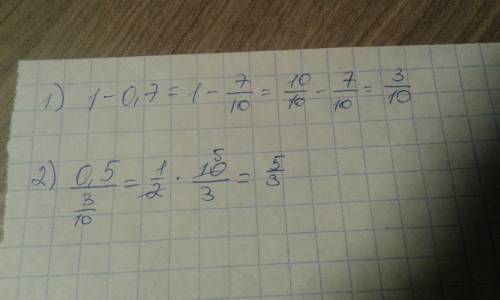 1) 1 - 0,7 = 1 - 7/10 = 10/10 - 7/10 = 3/10
2) 0,5 / (3/10) = 1/2 · 10/3 5 = 5/3